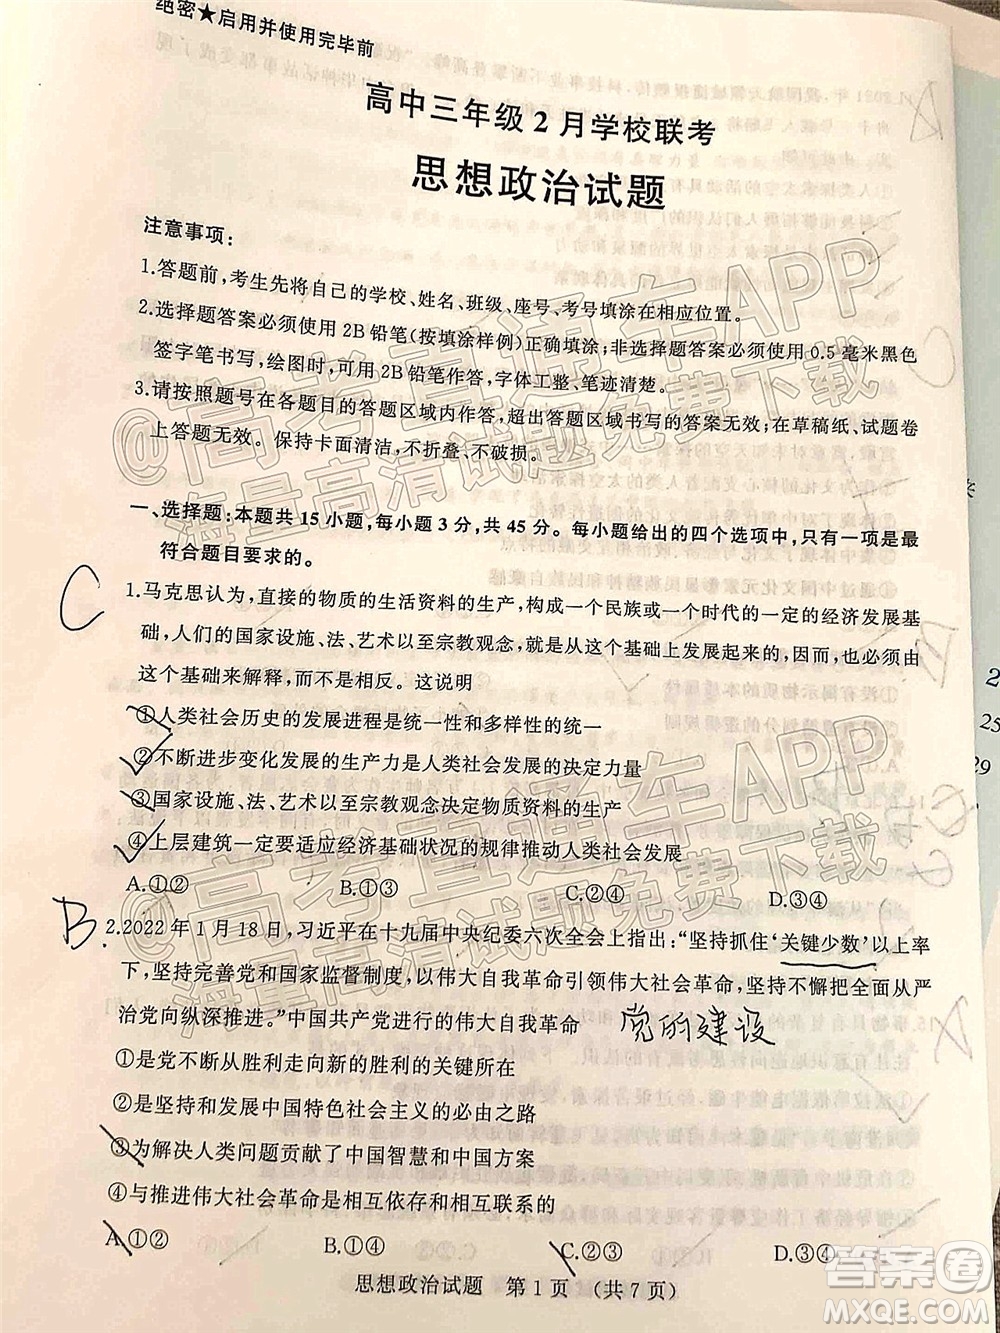 绝密★启用并使用完毕前
高中三年级2月学校联考
思想政治试题
注意事项：
1.答题前，考生先将自己的学校、姓名、班级、座号、考号填涂在相应位置。
2.选择题答案必须使用2B铅笔(按填涂样例)正确填涂；非选择题答案必须使用0.5毫米黑色
签字笔书写，绘图时，可用2B铅笔作答，字体工整、笔迹清楚。
3.请按照题号在各题目的答题区域内作答，超出答题区域书写的答案无效；在草稿纸、试题卷
上答题无效。保持卡面清洁，不折叠、不破损。
一、选择题：本题共15小题，每小题3分，共45分。每小题给出的四个选项中，只有一项是最
符合题目要求的。
C
1.马克思认为，直接的物质的生活资料的生产，构成一个民族或一个时代的一定的经济发展基
础，人们的国家设施、法、艺术以至宗教观念，就是从这个基础上发展起来的，因而，也必须由
这个基础来解释，而不是相反。这说明
①人类社会历史的发展进程是统一性和多样性的统一
②不断进步变化发展的生产力是人类社会发展的决定力量
③国家设施、法、艺术以至宗教观念决定物质资料的生产
④上层建筑一定要适应经济基础状况的规律推动人类社会发展
A.①② B.①③ C.②④ D.③④
B
2.2022年1月18日，习近平在十九届中央纪委六次全会上指出：“坚持抓住‘关键少数’以上率
下，坚持完善党和国家监督制度，以伟大自我革命引领伟大社会革命，坚持不懈把全面从严
治党向纵深推进。”中国共产党进行的伟大自我革命 党的建设
①是党不断从胜利走向新的胜利的关键所在
②是坚持和发展中国特色社会主义的必由之路
③为解决人类问题贡献了中国智慧和中国方案
④与推进伟大社会革命是相互依存和相互联系的
A.①② B.①④ C.②③ D.③④
思想政治试题 第1页 (共7页)
@高考直通车APP
海量高清试题免费下载
@高考直通车APP
海量高清试题免费下载
答案圈
MXQE.COM